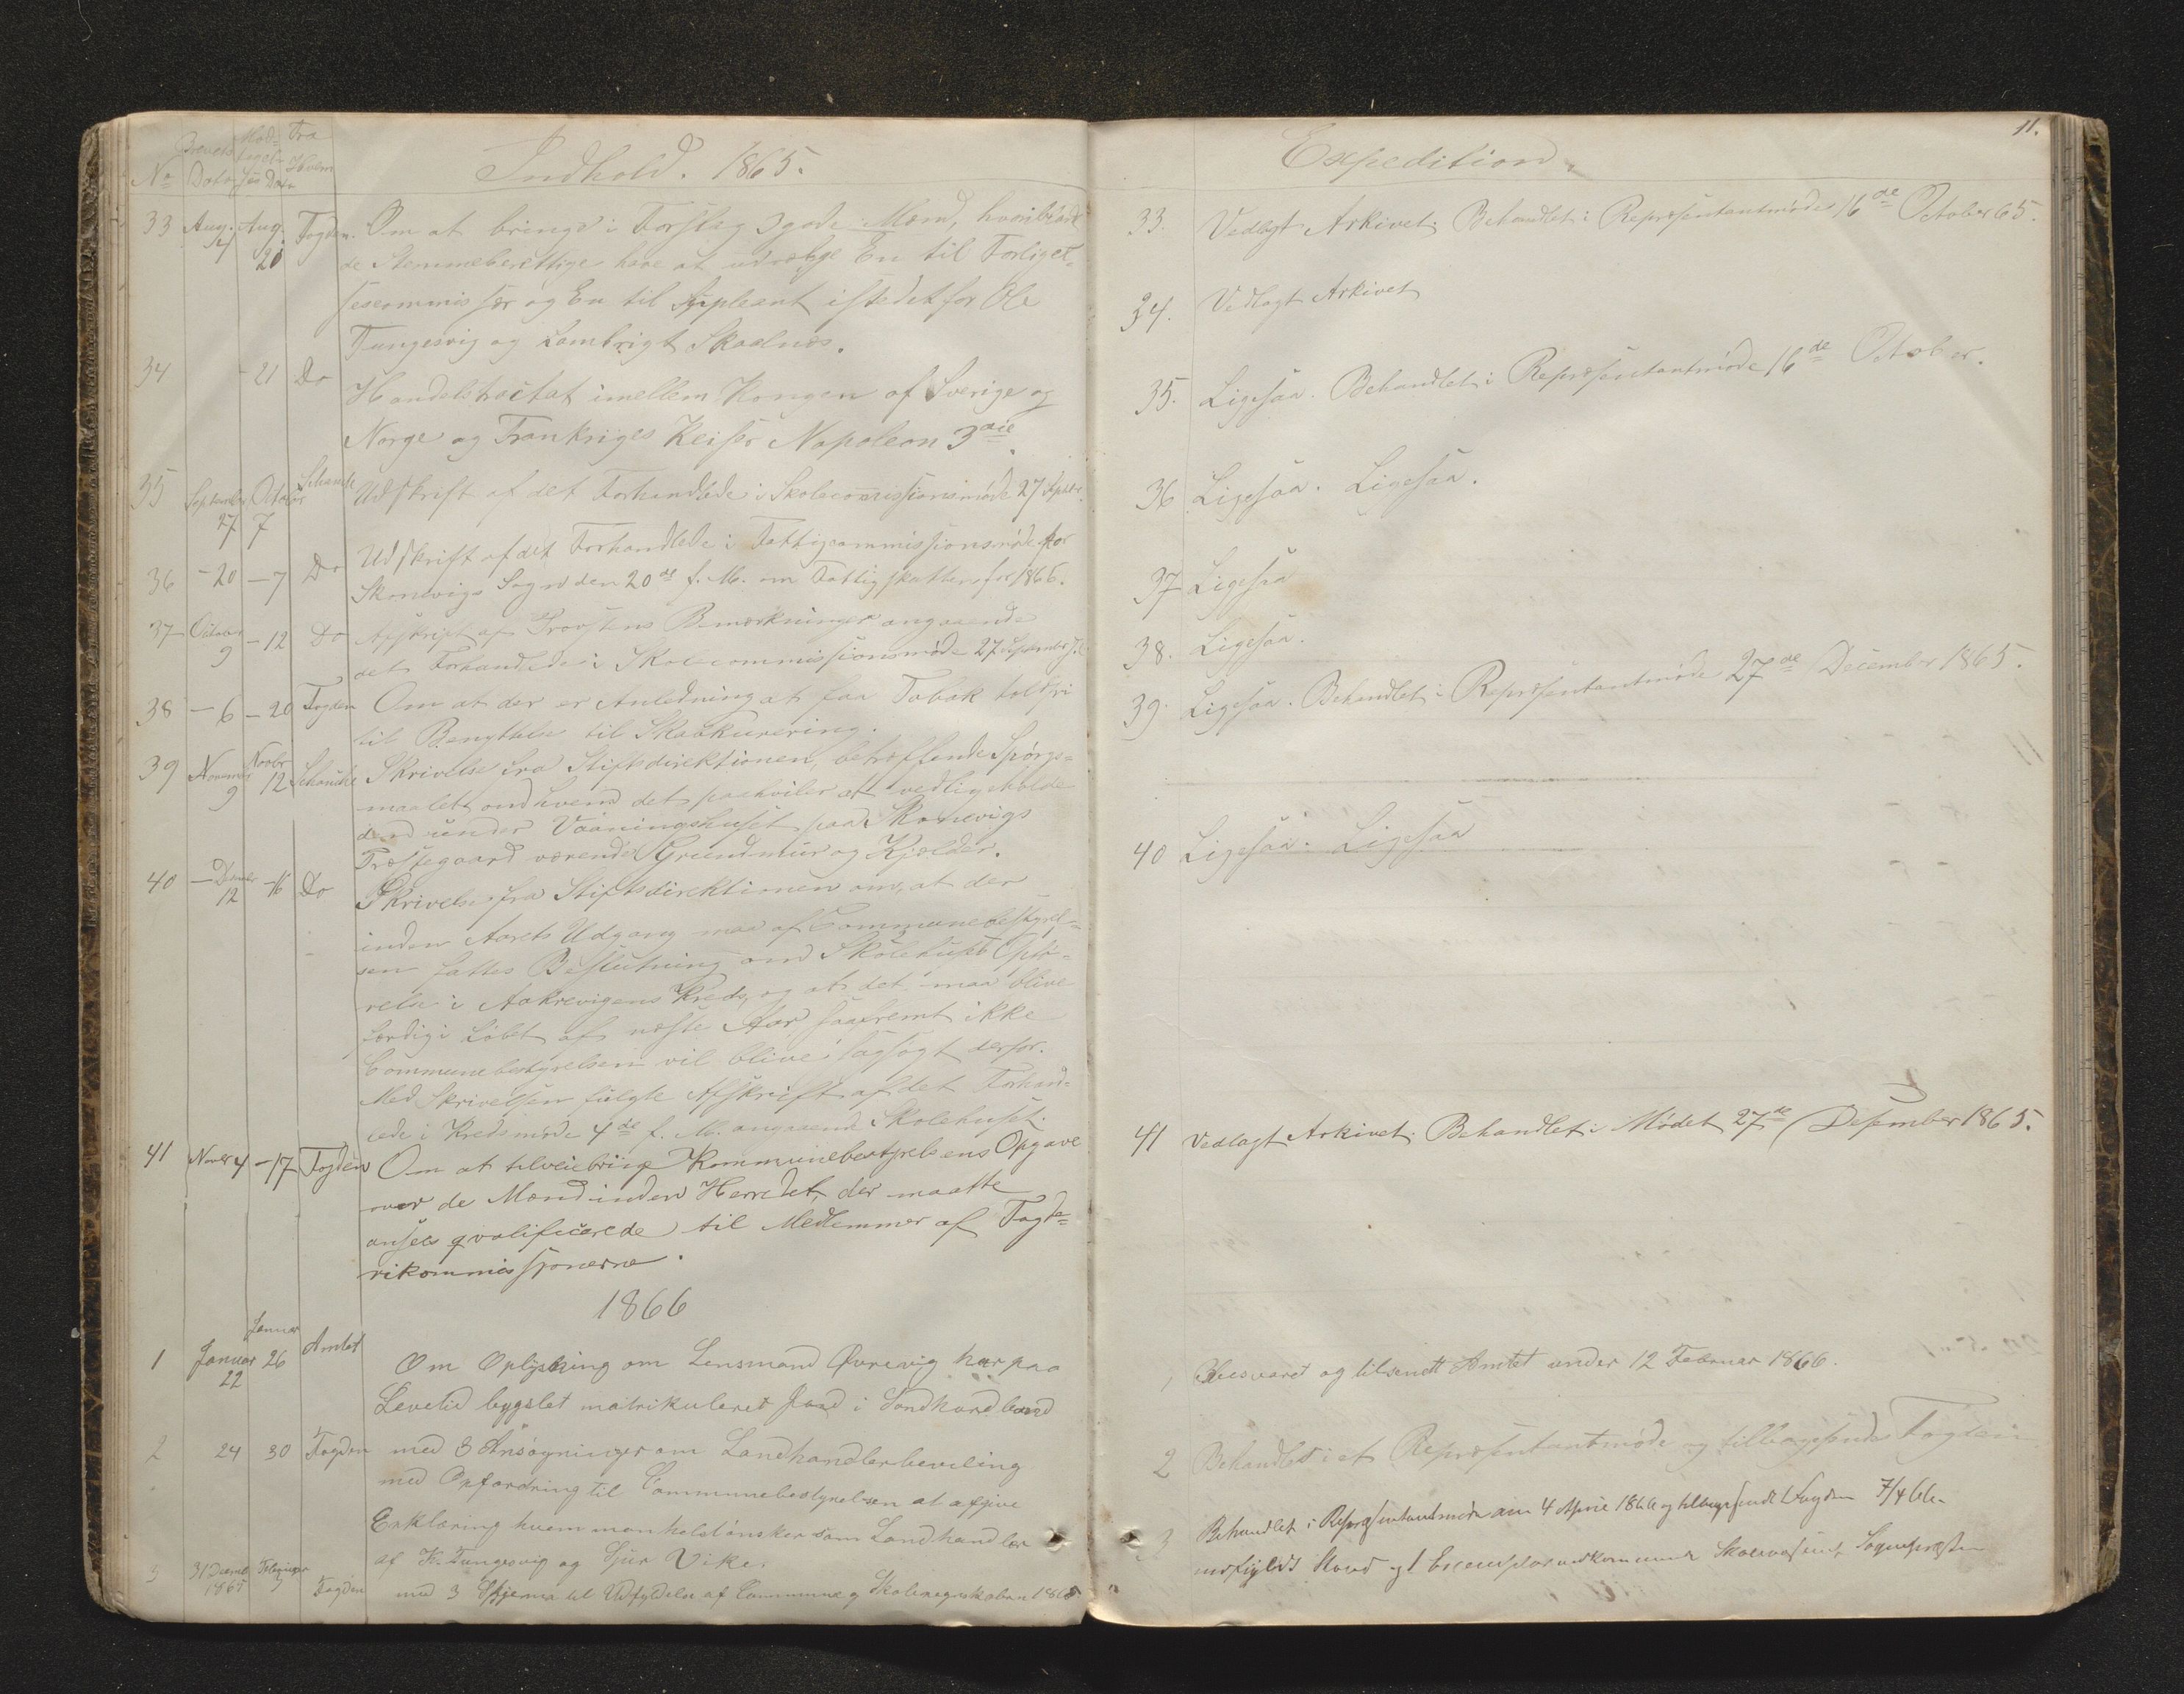 No Brevets Dato Mod- tagel- ses Dato Fra Hvem
Indhold. 1865.
33 Aug. 21 Aug. 28 Fogden. Om at bringe i Forslag 3 gode Mænd, hvoriblandt
de Stemmeberettige have at udvælge En til Forligel-
sescommissær og En til Supleant istedetfor Ole
Tungesvig og Lambrigt Skaalnæs.
34 - 21 Do Handelstractat imellem Kongen af Sverige og
Norge og Frankriges Keiser Napoleon 3die.
35 September 27 October 7 Schancke Udskrift af det Forhandlede i Skolecommissionsmøde 27 Septbr.
36 - 20 - 7 Do Udskrift af det Forhandlede i Fattigcommissionsmøde for
Skonevigs Sogn den 20de f. M. om Fattigskatten for 1866.
37 October 9 - 12 Do Afskrift af Provstens Bemærkninger angaaende
det Forhandlede i Skolecommissionsmøde 27 September
38 - 6 - 20 Fogden Om at der er Anledning at faa Tobak toldfri
til Benyttelse til Skabkurering.
39 November 9 Novbr 12 Schancke Skrivelse fra Stiftsdirektionen, betræffende Spørgs-
maalet om hvem det paahviler at vedligeholde
den under Vaaningshuset paa Skonevigs
Præstegaard værende Grundmur og Kjelder.
40 - December 12 - 16 Do Skrivelse fra Stiftsdirektionen om, at der
inden Aarets Udgang maa af Communebestyrel-
sen fattes Beslutning om Skolehusets Opfø-
relse i Aakrevigens Kreds, og at det maa blive
færdig i Løbet af næste Aar, saafremt ikke
Communebestyrelsen vil blive sagsøgt derfor.
Med Skrivelsen fulgte Afskrift af det Forhand-
lede i Kredsmøde 4de f. M. angaaende Skolehuset.
41 Novbr 4 - 17 Fogden Om at tilveiebringe Kommunebestyrelsens Opgave
over de Mænd inden Herredet, der maatte
ansees qvalificerede til Medlemmer af Fogde-
rikommissionerne.
1866
1 Januar 22 Januar 26 Amtet Om Oplysning om Lensmand Øvrevig har paa
Levetid bygslet matrikuleret Jord i Søndhordland
2 24 30 Fogden med 3 Ansøgninger om Landhandlerbevilling
med Opfordring til Communebestyrelsen at afgive
Erklæring hvem man helst ønsker som Landhandler
af K. Tungesvig og Sjur Vike.
3 31 Decembr 1865 Februar 3 Fogden med 3 Skjema til Udfyldelse af Commune og Skoleregnskaben 1865
11.
Expedition.
33. Vedlagt Arkivet. Behandlet i Repræsentantmøde 16de October 65.
34. Vedlagt Arkivet
35. Ligesaa. Behandlet i Repræsentantmøde 16de October.
36 Ligesaa. Ligesaa.
37 Ligesaa
38. Ligesaa.
39. Ligesaa. Behandlet i Repræsentantmøde 27de December 1865.
40 Ligesaa. Ligesaa
41 Vedlagt Arkivet. Behandlet i Mødet 27de Desember 1865.
1 Besvaret og tilsendt Amtet under 12 Februar 1866.
2 Behandlet i et Repræsentantmøde og tilbagesendt Fogden
3 Behandlet i Repræsentantmøde den 4 April 1866 og tilbagesendt Fogden 7/4 66.
udfyldt Stand og 1 Exemplar vedkommende Skolevæsenet, Sognepræsten